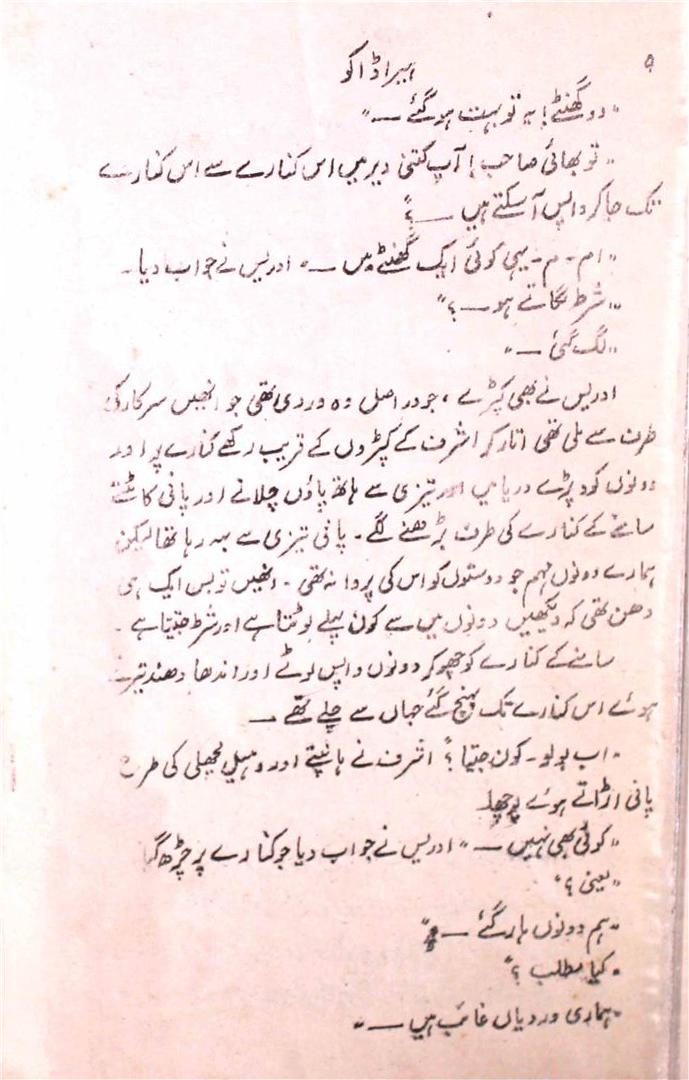 ۹
ہیرا ڈاکو
"دو گھنٹے! یہ تو بہت ہو گئے ـــ"
"تو بھائی صاحب! آپ کتنی دیر میں اس کنارے سے اس کنارے
تک جا کر واپس آ سکتے ہیں ـــ؟"
"ام - م - یہی کوئی ایک گھنٹے میں ـــ" ادریس نے جواب دیا۔
"شرط لگاتے ہو ـــ؟"
"لگ گئی ـــ"
ادریس نے بھی کپڑے، جو در اصل وہ وردی تھی جو انھیں سرکار کی
طرف سے ملی تھی اتار کر اشرف کے کپڑوں کے قریب رکھے کنارے پر اور
دونوں کود پڑے دریا میں اور تیزی سے ہاتھ پاؤں چلاتے اور پانی کاٹتے
سامنے کے کنارے کی طرف بڑھنے لگے۔ پانی تیزی سے بہہ رہا تھا لیکن
ہمارے دونوں مہم جو دوستوں کو اس کی پروا نہ تھی۔ انھیں تو بس ایک ہی
دھن تھی کہ دیکھیں دونوں میں سے کون پہلے لوٹتا ہے اور شرط جیتتا ہے۔
سامنے کے کنارے کو چھو کر دونوں واپس لوٹے اور اندھا دھند تیرتے
ہوئے اس کنارے تک پہنچ گئے جہاں سے چلے تھے ـــ
"اب بولو - کون جیتا؟" اشرف نے ہانپتے اور وہیل مچھلی کی طرح
پانی اڑاتے ہوئے پوچھا۔
"کوئی بھی نہیں ـــ" ادریس نے جواب دیا جو کنارے پر چڑھ گیا
"یعنی؟"
"ہم دونوں ہار گئے ـــ"
"کیا مطلب؟"
"ہماری وردیاں غائب ہیں ـــ"